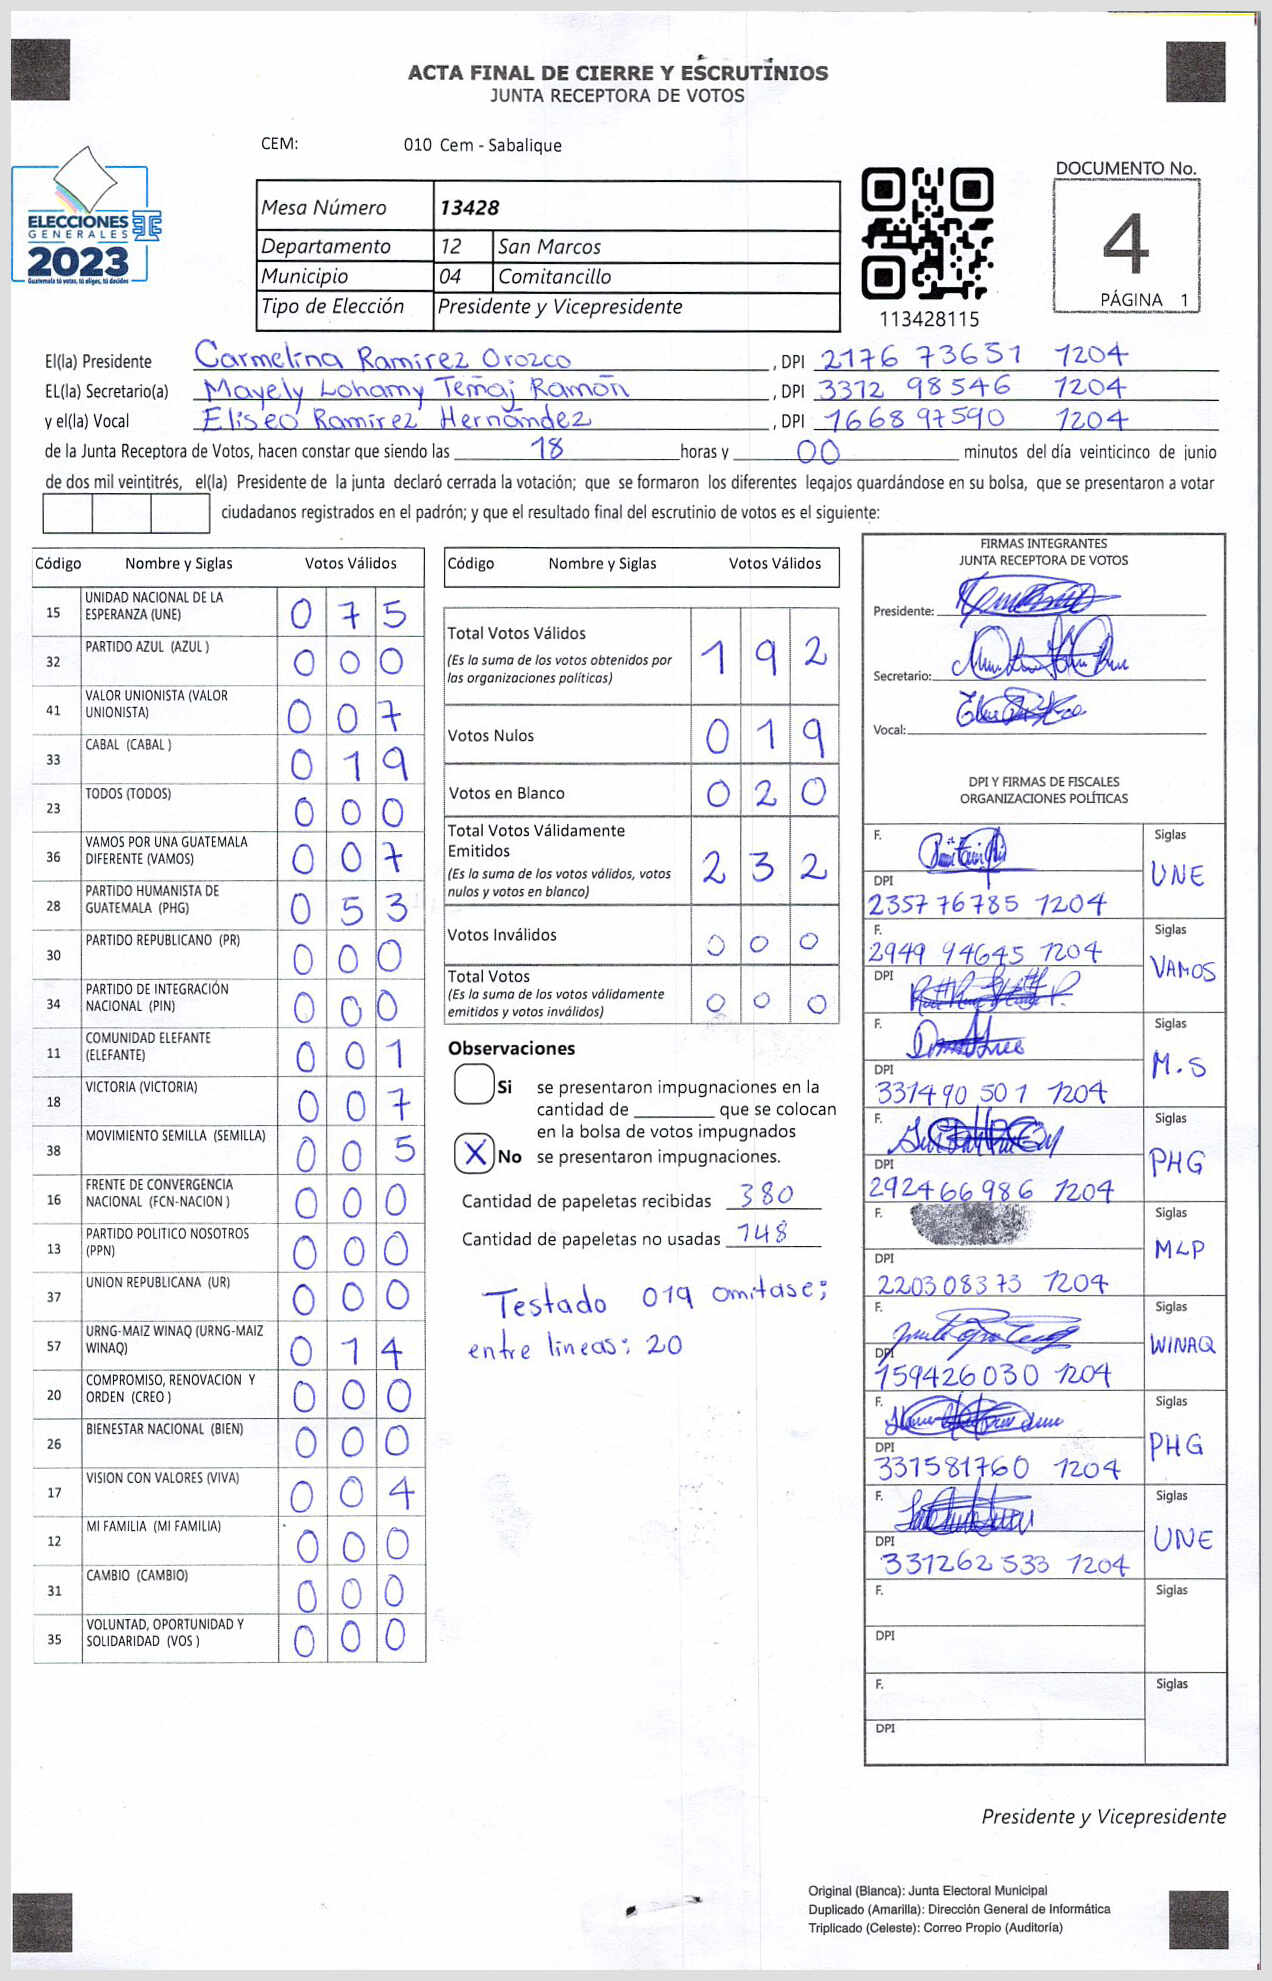 ACTA FINAL DE CIERRE Y ESCRUTINIOS
JUNTA RECEPTORA DE VOTOS
CEM: 010 Cem - Sabalique
ELECCIONES
GENERALES
2023
Guatemala tú votas, tú eliges, tú decides
Mesa Número 13428
Departamento 12 San Marcos
Municipio 04 Comitancillo
Tipo de Elección Presidente y Vicepresidente
113428115
DOCUMENTO No.
4
PÁGINA 1
El(la) Presidente Carmelina Ramírez Orozco, DPI 2176 73651 1204
EL(la) Secretario(a) Mayely Lohamy Temaj Ramón, DPI 3312 98546 1204
y el(la) Vocal Eliseo Ramírez Hernández, DPI 1668 97590 1204
de la Junta Receptora de Votos, hacen constar que siendo las 18 horas y 00 minutos del día veinticinco de junio
de dos mil veintitrés, el(la) Presidente de la junta declaró cerrada la votación; que se formaron los diferentes legajos guardándose en su bolsa, que se presentaron a votar
ciudadanos registrados en el padrón; y que el resultado final del escrutinio de votos es el siguiente:
Código Nombre y Siglas Votos Válidos
15 UNIDAD NACIONAL DE LA ESPERANZA (UNE) 0 7 5
32 PARTIDO AZUL (AZUL ) 0 0 0
41 VALOR UNIONISTA (VALOR UNIONISTA) 0 0 7
33 CABAL (CABAL ) 0 1 9
23 TODOS (TODOS) 0 0 0
36 VAMOS POR UNA GUATEMALA DIFERENTE (VAMOS) 0 0 7
28 PARTIDO HUMANISTA DE GUATEMALA (PHG) 0 5 3
30 PARTIDO REPUBLICANO (PR) 0 0 0
34 PARTIDO DE INTEGRACIÓN NACIONAL (PIN) 0 0 0
11 COMUNIDAD ELEFANTE (ELEFANTE) 0 0 1
18 VICTORIA (VICTORIA) 0 0 7
38 MOVIMIENTO SEMILLA (SEMILLA) 0 0 5
16 FRENTE DE CONVERGENCIA NACIONAL (FCN-NACION ) 0 0 0
13 PARTIDO POLITICO NOSOTROS (PPN) 0 0 0
37 UNION REPUBLICANA (UR) 0 0 0
57 URNG-MAIZ WINAQ (URNG-MAIZ WINAQ) 0 1 4
20 COMPROMISO, RENOVACION Y ORDEN (CREO ) 0 0 0
26 BIENESTAR NACIONAL (BIEN) 0 0 0
17 VISION CON VALORES (VIVA) 0 0 4
12 MI FAMILIA (MI FAMILIA) 0 0 0
31 CAMBIO (CAMBIO) 0 0 0
35 VOLUNTAD, OPORTUNIDAD Y SOLIDARIDAD (VOS ) 0 0 0
Código Nombre y Siglas Votos Válidos
Total Votos Válidos 1 9 2
(Es la suma de los votos obtenidos por
las organizaciones políticas)
Votos Nulos 0 1 9
Votos en Blanco 0 2 0
Total Votos Válidamente
Emitidos 2 3 2
(Es la suma de los votos válidos, votos
nulos y votos en blanco)
Votos Inválidos 0 0 0
Total Votos
(Es la suma de los votos válidamente
emitidos y votos inválidos) 0 0 0
Observaciones
Si se presentaron impugnaciones en la
cantidad de ________ que se colocan
en la bolsa de votos impugnados
X No se presentaron impugnaciones.
Cantidad de papeletas recibidas 380
Cantidad de papeletas no usadas 148
Testado 019 omitase;
entre lineas: 20
FIRMAS INTEGRANTES
JUNTA RECEPTORA DE VOTOS
Presidente:
Secretario:
Vocal:
DPI Y FIRMAS DE FISCALES
ORGANIZACIONES POLÍTICAS
F. Siglas UNE
DPI 235776785 1204
F. 2949 94645 1204 Siglas VAMOS
DPI
F. Siglas M.S
DPI 331490 501 1204
F. Siglas PHG
DPI 292466986 1204
F. Siglas MLP
DPI 220308373 1204
F. Siglas WINAQ
DPI 159426030 1204
F. Siglas PHG
DPI 331581760 1204
F. Siglas UNE
DPI 331262533 1204
F. Siglas
DPI
F. Siglas
DPI
Presidente y Vicepresidente
Original (Blanca): Junta Electoral Municipal
Duplicado (Amarilla): Dirección General de Informática
Triplicado (Celeste): Correo Propio (Auditoría)